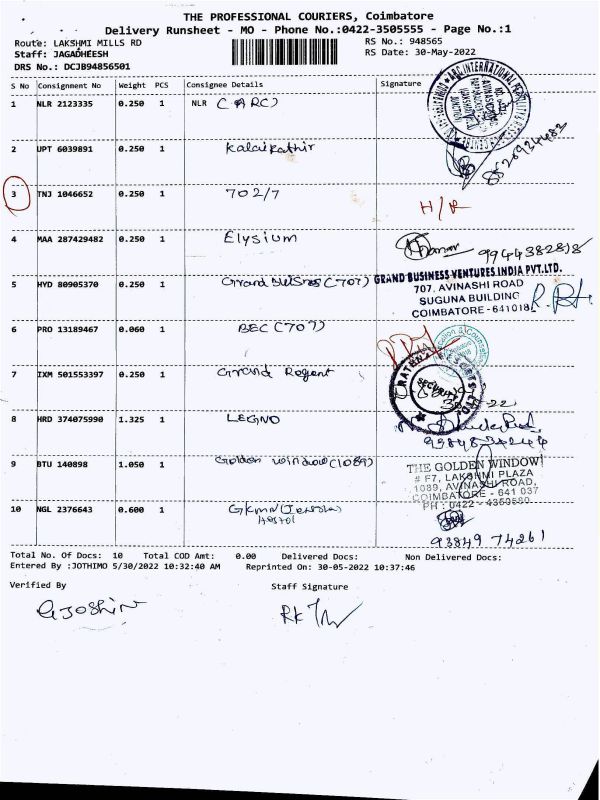 THE PROFESSIONAL COURIERS, Coimbatore
Delivery Runsheet - MO - Phone No.:0422-3505555 - Page No.:1
Route: LAKSHMI MILLS RD RS No.: 948565
Staff: JAGADHEESH RS Date: 30-May-2022
DRS No.: DCJB94856501
S No Consignment No Weight PCS Consignee Details Signature
1 NLR 2123335 0.250 1 NLR (ARC)
2 UPT 6039891 0.250 1 Kalaikathir
3 TNJ 1046652 0.250 1 702/7 H/R
4 MAA 287429482 0.250 1 Elysium 9944382818
5 HYD 80905370 0.250 1 Grand (707) GRAND BUSINESS VENTURES INDIA PVT.LTD.
707, AVINASHI ROAD
SUGUNA BUILDING
COIMBATORE - 641018
6 PRO 13189467 0.060 1 BEC (707)
7 IXM 501553397 0.250 1 Grand Regent SECURITY
8 HRD 374075990 1.325 1 LEGNO
9 BTU 140898 1.050 1 Golden Window (1089) THE GOLDEN WINDOW
# F7, LAKSHMI PLAZA
1089, AVINASHI ROAD,
COIMBATORE - 641 037
PH : 0422 -
10 NGL 2376643 0.600 1 GKMN
Hostel
93849 74261
Total No. Of Docs: 10 Total COD Amt: 0.00 Delivered Docs: Non Delivered Docs:
Entered By :JOTHIMO 5/30/2022 10:32:40 AM Reprinted On: 30-05-2022 10:37:46
Verified By Staff Signature